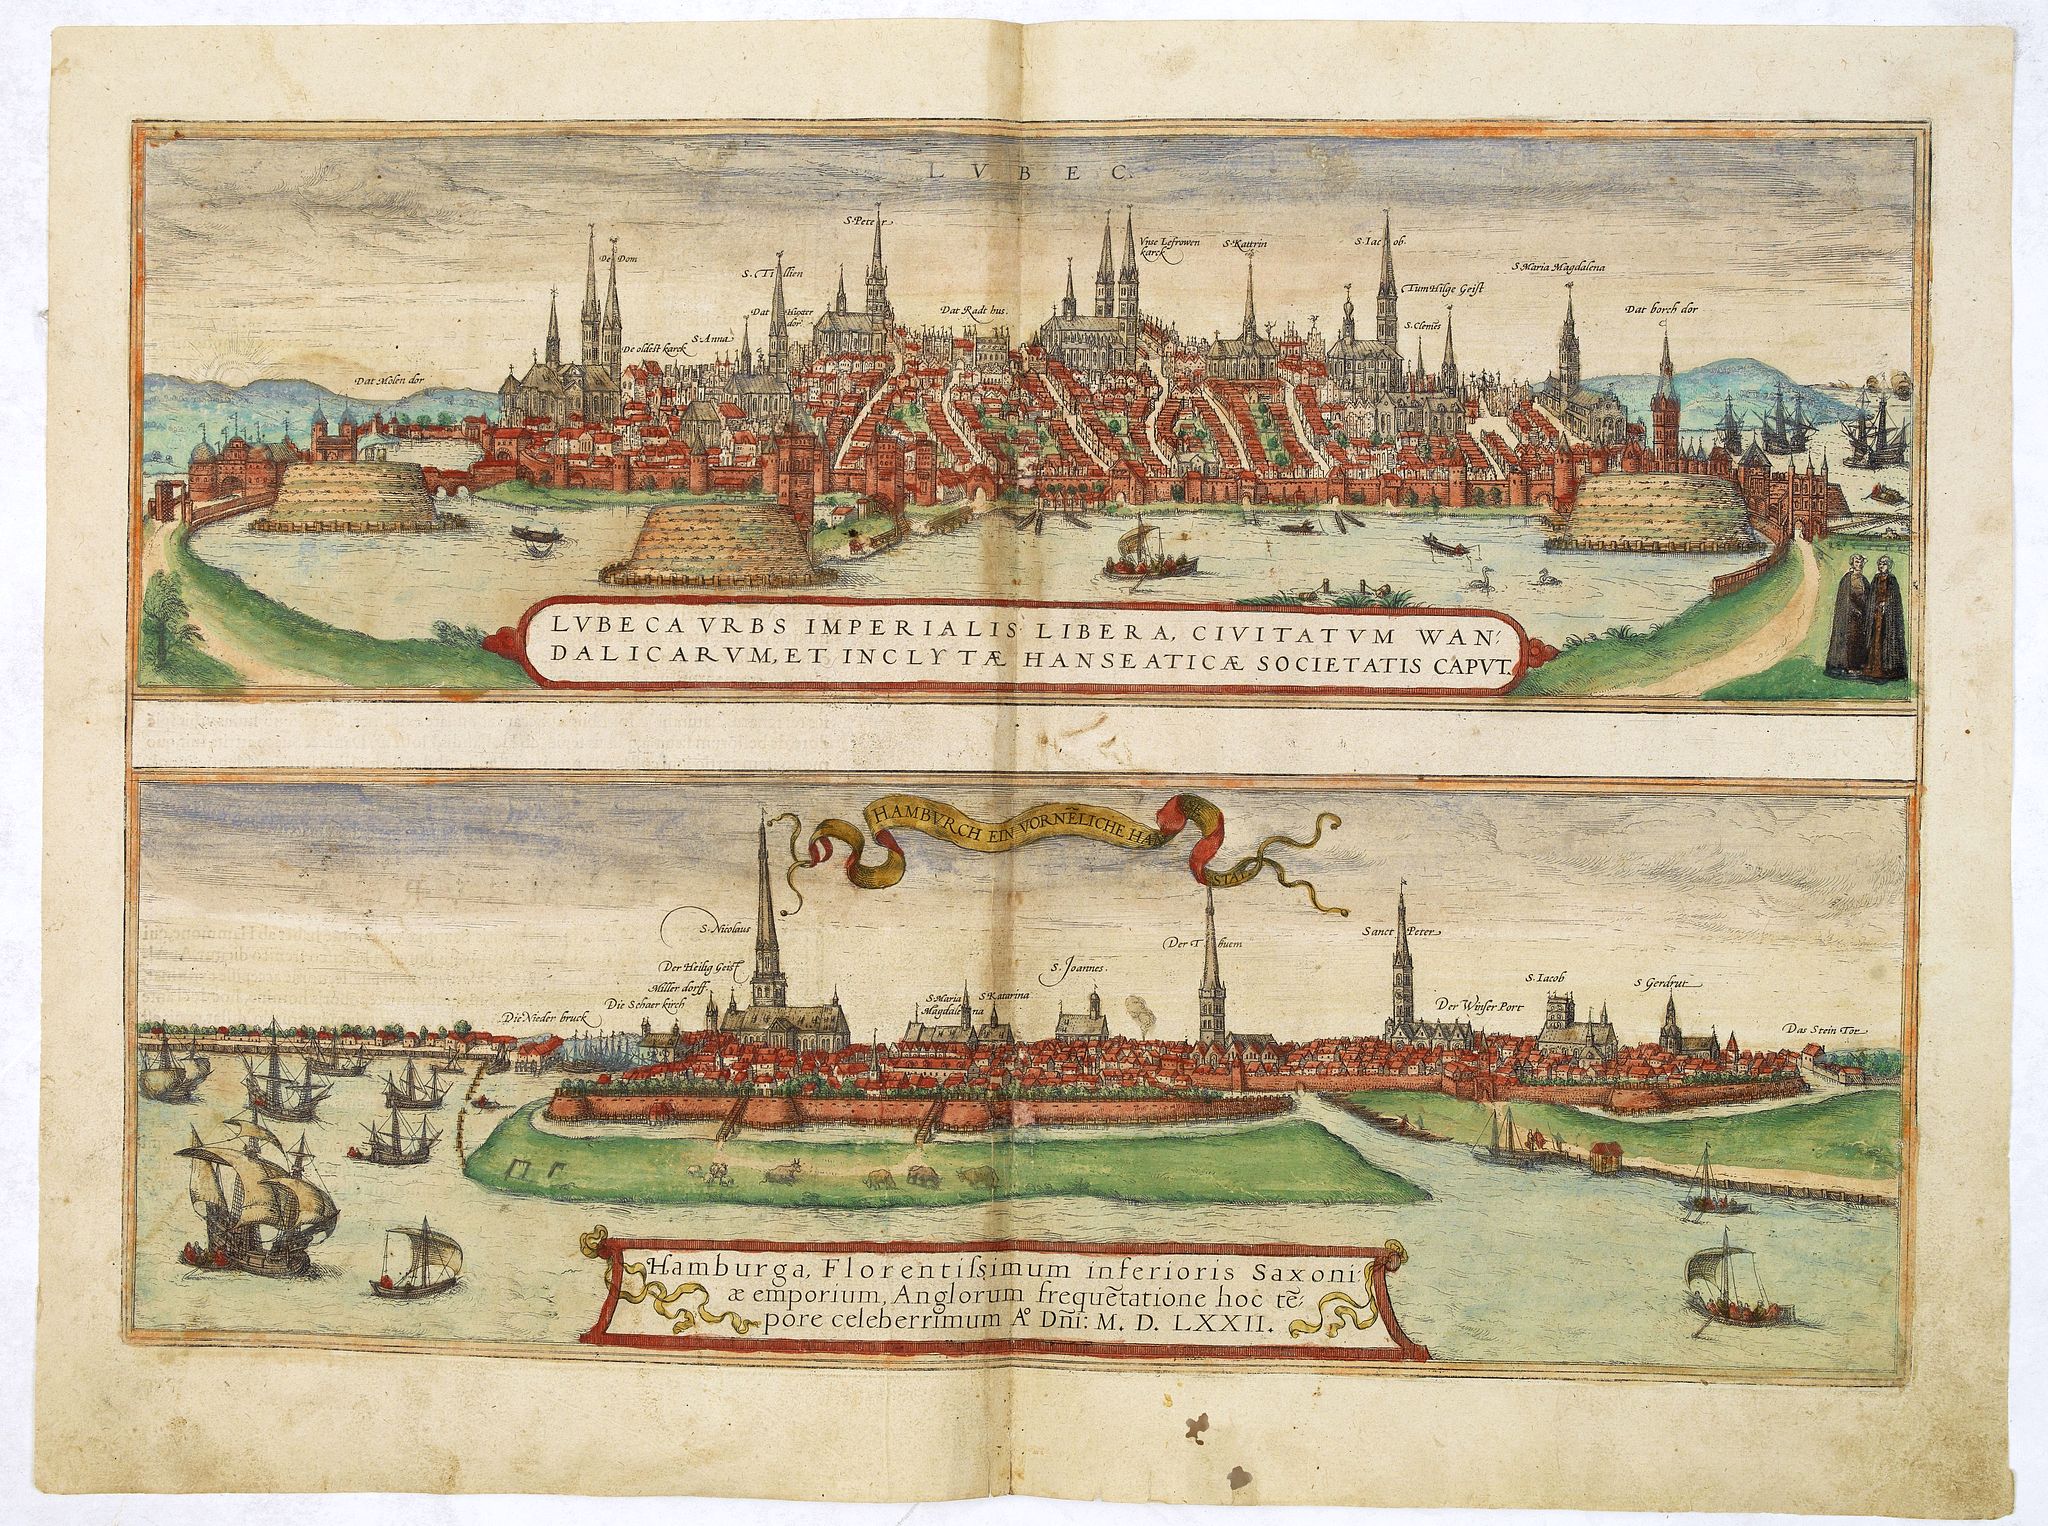 LVBEC.
De Dom
S. Tillien
S. Peter
Vnse Lefrowen
karck
S. Kattrin
S. Iacob.
S. Maria Magdalena
Tum Hilge Geist
Dat borch dor
S. Clemēs
Dat Radt hus.
Dat Huxter
dor
S. Anna
De oldest karck
Dat Molen dor
LVBECA VRBS IMPERIALIS LIBERA, CIVITATVM WAN-
DALICARVM, ET INCLYTÆ HANSEATICÆ SOCIETATIS CAPVT.
HAMBVRCH EIN VORNĒLICHE HANSE STAT.
S. Nicolaus
Der Heilig Geist
Miller dorff.
Die Schaer kirch
Die Nieder bruck
S. Maria
Magdalena
S. Katarina
S. Joannes.
Der Thuem
Sanct Peter
Der Winser Port
S. Iacob
S Gerdrut
Das Stein Tor
Hamburga, Florentissimum inferioris Saxoni-
æ emporium, Anglorum frequētatione hoc tē-
pore celeberrimum A° Dñi: M. D. LXXII.